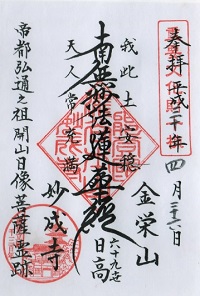 奉拝
平成二十年
四月
我此土安穏
南無妙法蓮華経
天人常充満
金栄山
六十九世
日高
妙成寺
帝都弘通之祖開山日像菩薩霊跡